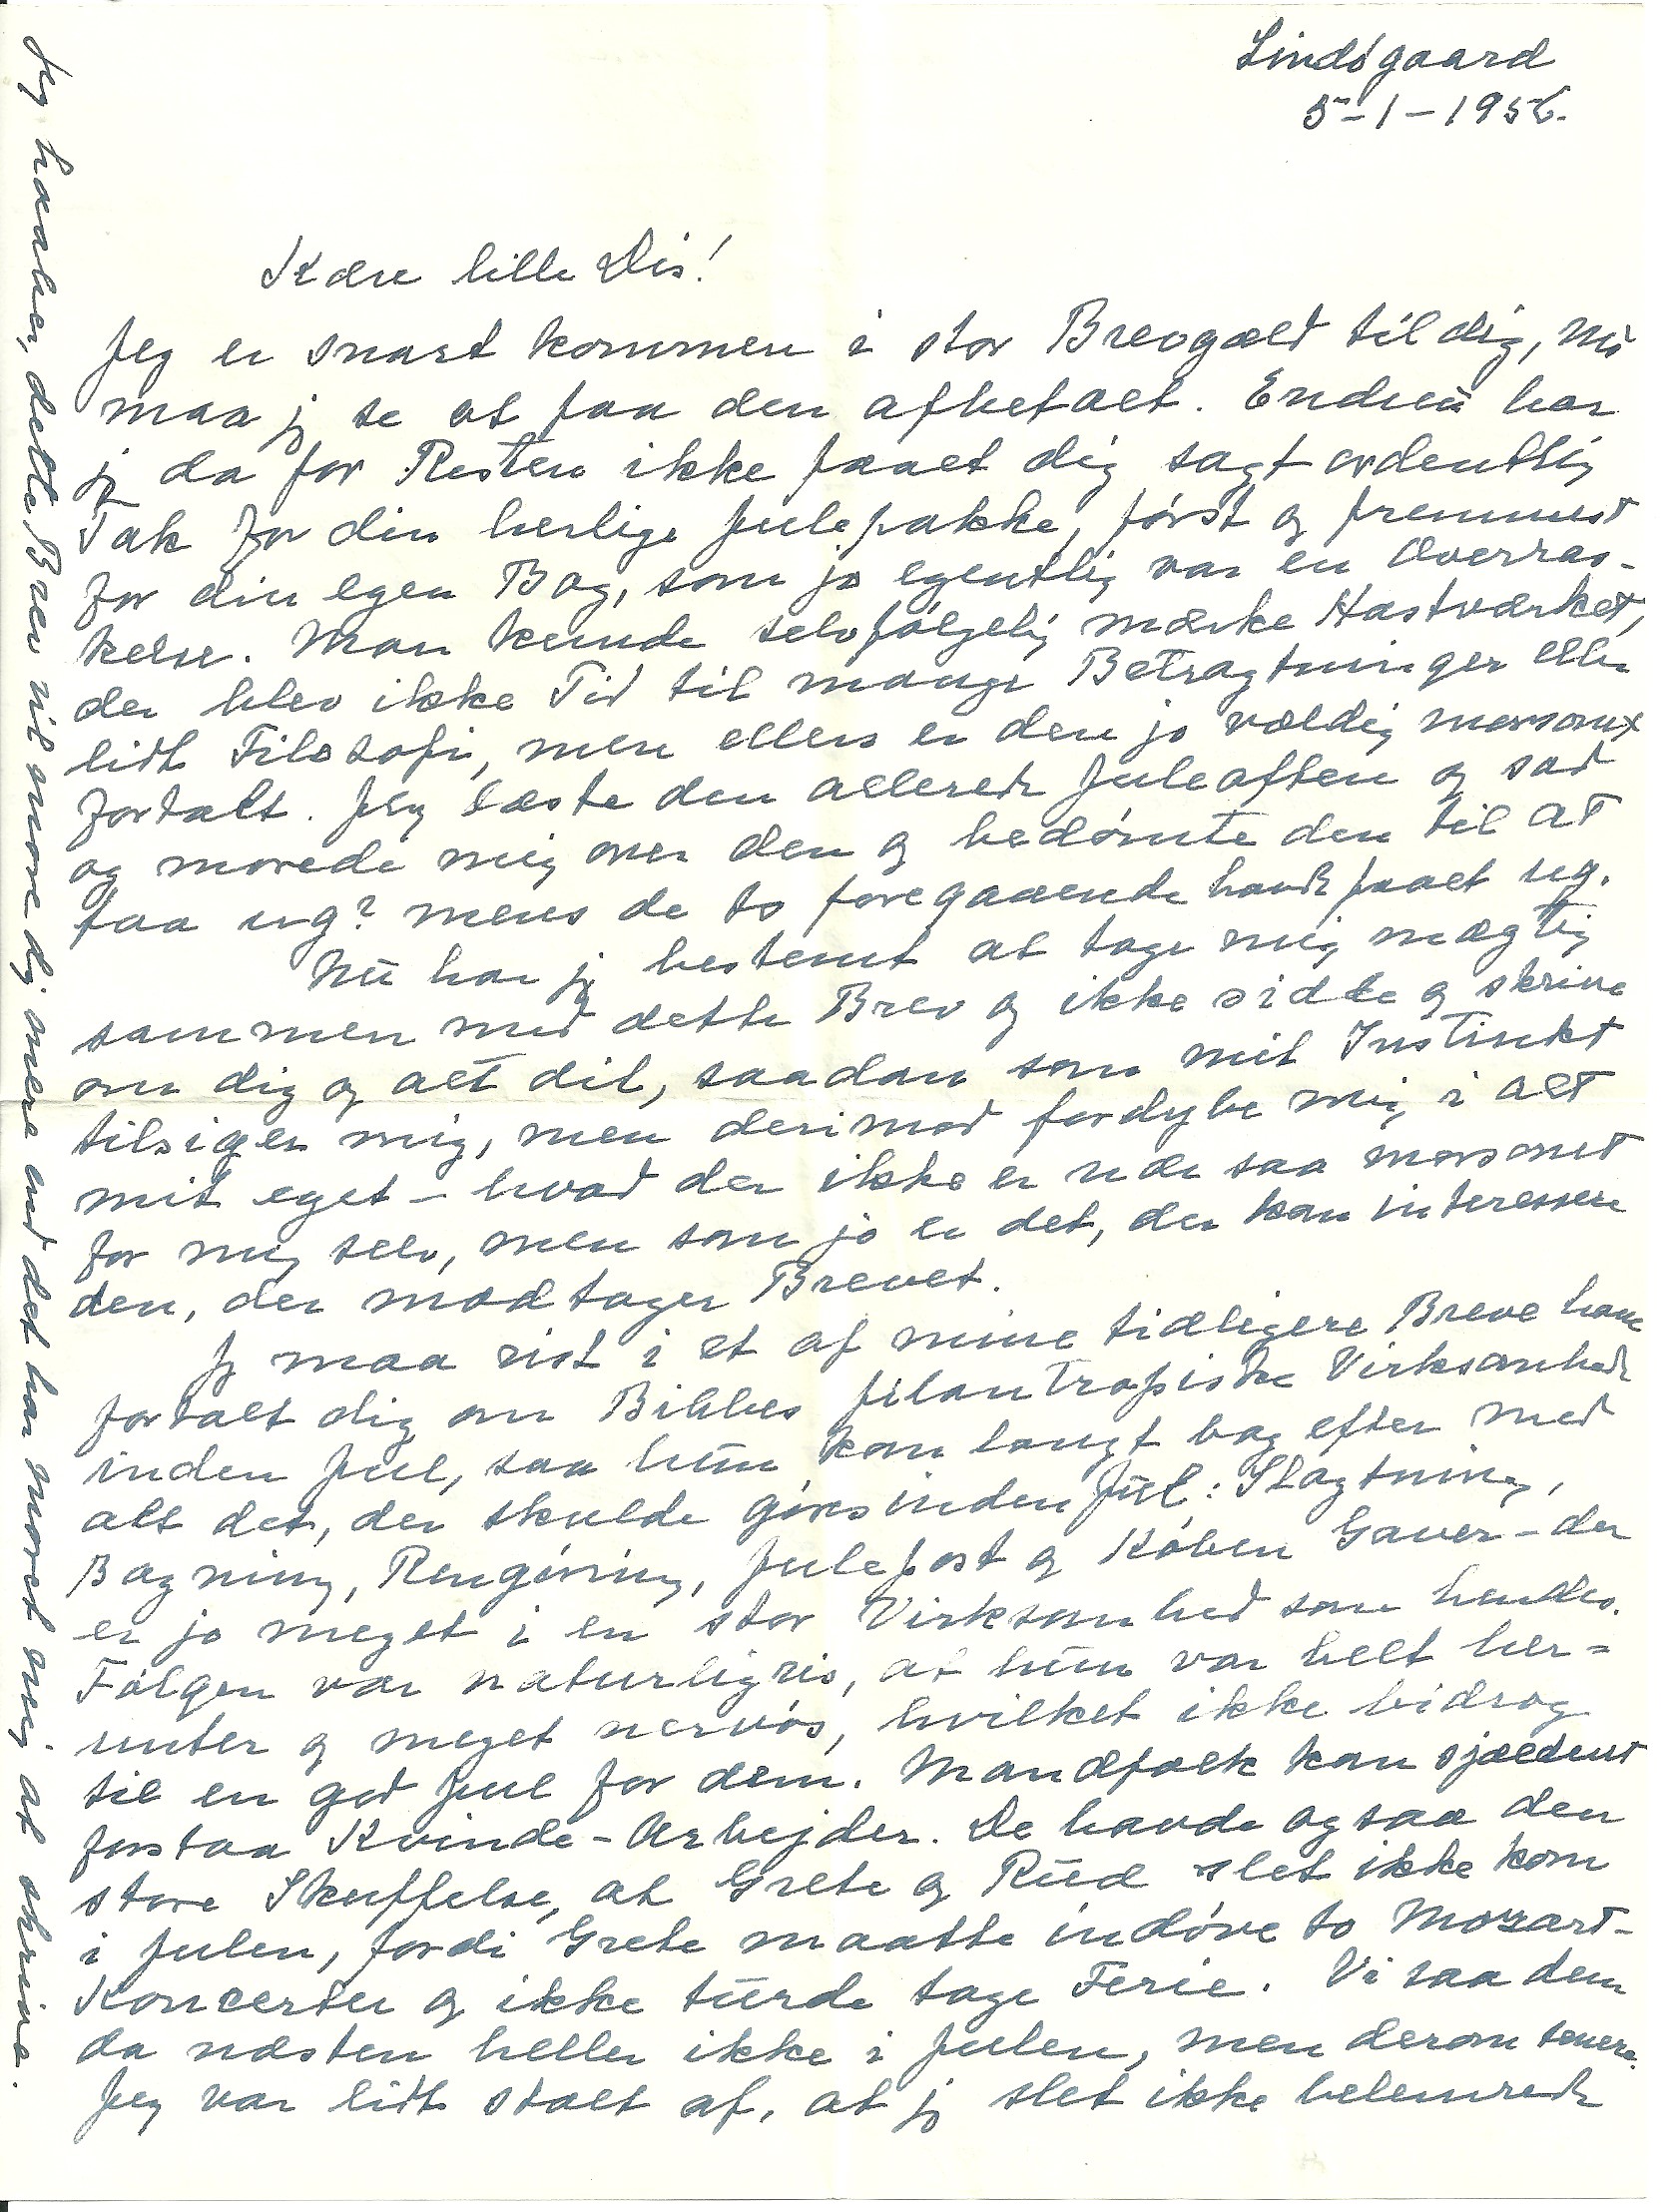 Lindøgaard
5-1-1956.
Kære lille Dis!
Jeg er snart kommen i stor Brevgæld til dig, nu
maa jg se at faa den afbetalt. Endnu har
jg da for Resten ikke faaet dig sagt ordentlig
Tak for din herlige Julepakke, først og fremmest
for din egen Bog, som jo egentlig var en Overras-
kelse. Man kunde selvfølgelig mærke Hastværket,
der blev ikke Tid til mange Betragtninger eller
lidt Filosofi, men ellers er den jo vældig morsomt
fortalt. Jeg læste den allerede Juleaften og sad
og morede mig over den og bedømte den til at
faa ug? mens de to foregaaende havde faaet ug.
Nu har jg bestemt at tage mig mægtig
sammen med dette Brev og ikke sidde og skrive
om dig og alt dit, saadan som mit Instinkt
tilsiger mig, men derimod fordybe mig i alt
mit eget - hvad der ikke er nær saa morsomt
for mig selv, men som jo er det, der kan interessere
den, der modtager Brevet.
Jg maa vist i et af mine tidligere Breve have
fortalt dig om Bibbes filantropiske Virksomhed
inden Jul, saa hun kom langt bag efter med
alt det, der skulde gøres inden Jul: Slagtning,
Bagning, Rengøring, Julepost og Køben Gaver - der
er jo meget i en stor Virksomhed som hendes.
Følgen var naturligvis, at hun var helt her-
unter og meget nervøs, hvilket ikke bidrog
til en god Jul for dem. Mandfolk kan sjældent
forstaa Kvinde-Arbejder. De havde ogsaa den
store Skuffelse, at Grete og Rud slet ikke kom
i Julen, fordi Grete maatte indøve to Mozart-
Koncerter og ikke turde tage Ferie. Vi saa dem
da næsten heller ikke i Julen, men derom senere.
Jeg var lidt stolt af, at jg slet ikke belemrede
Jeg haaber, dette Brev vil more dig mere end det har moret mig at skrive.